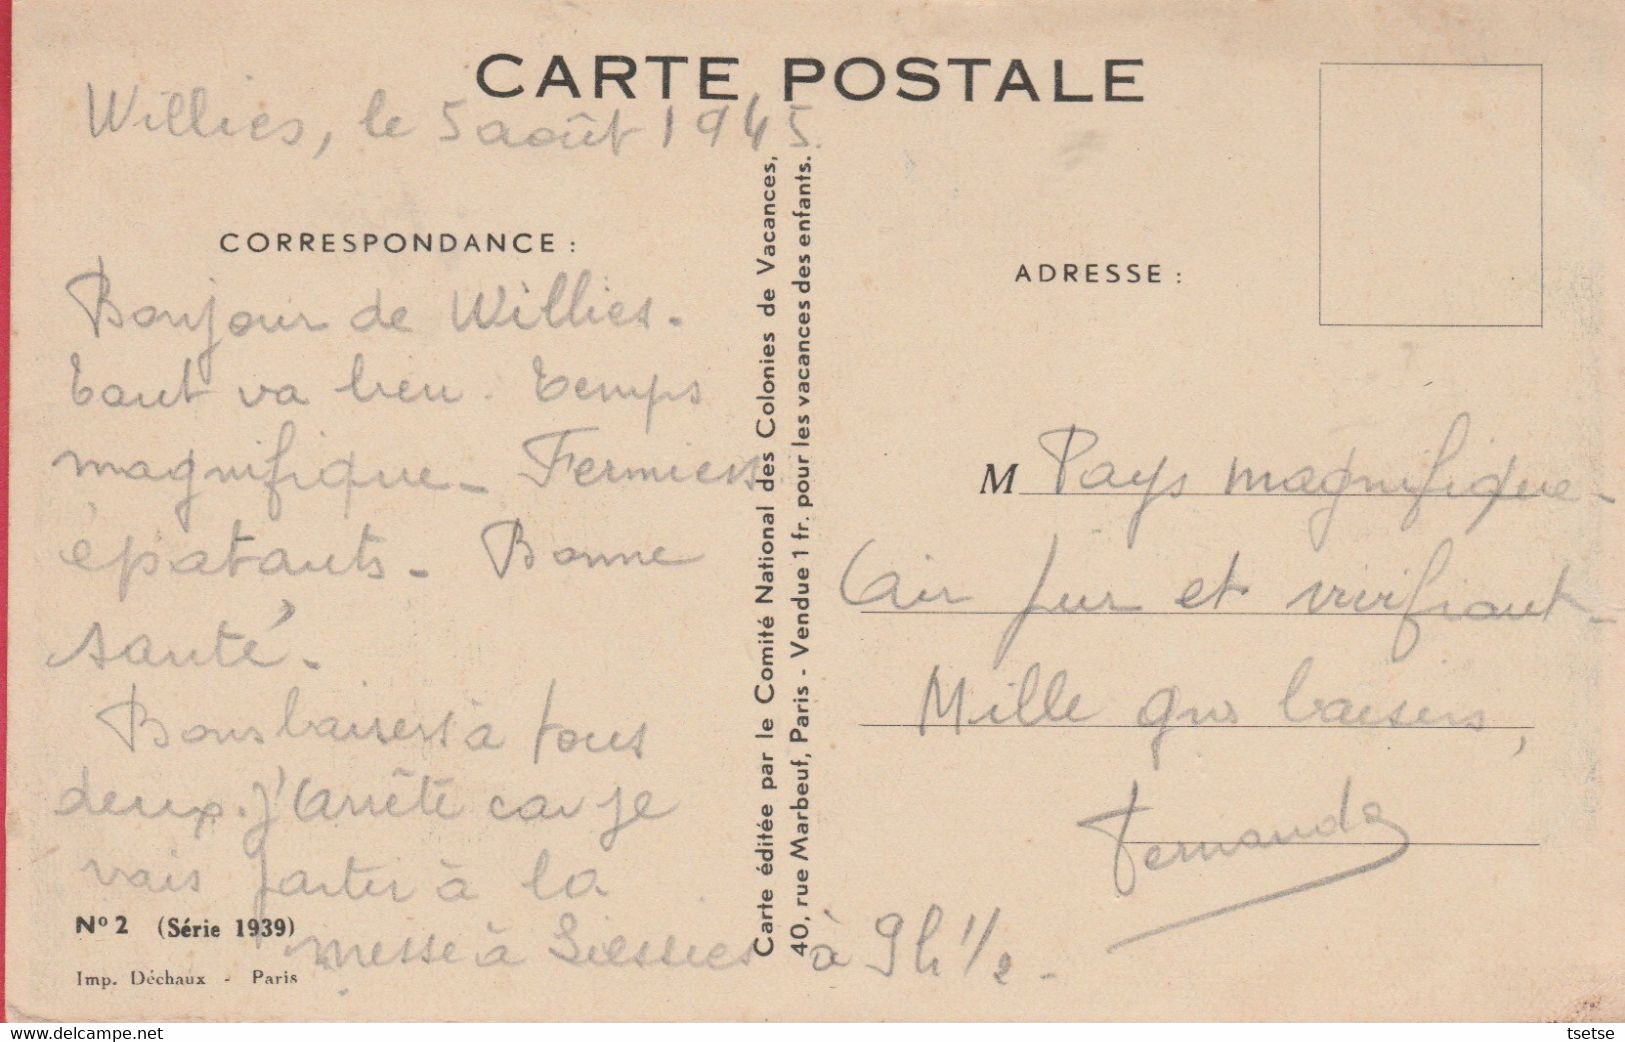 CARTE POSTALE
Willies, le 5 août 1945.
CORRESPONDANCE :
Bonjour de Willies.
Tout va bien. Temps
magnifique - Fermiers
épatants - Bonne
santé -
Bons baisers à tous
deux. J'arrête car je
vais partir à la
messe à à 9h 1/2 -
No 2 (Série 1939)
Imp. Déchaux - Paris
Carte éditée par le Comité National des Colonies de Vacances,
40, rue Marbeuf, Paris - Vendue 1 fr. pour les vacances des enfants.
ADRESSE :
M Pays magnifique -
Air pur et vivifiant -
Mille gros baisers,
Fernande
delcampe.net
tsetse